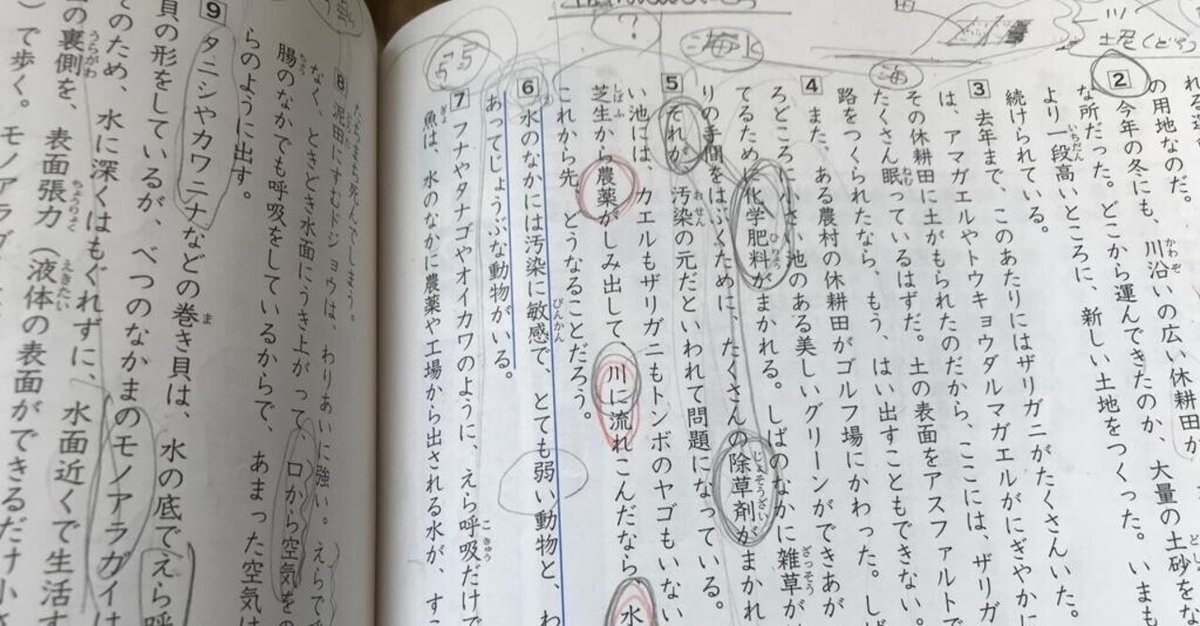 の用地なのだ。
2 今年の冬にも、川沿いの広い休耕田が
な所だった。どこから運んできたのか、大量の土砂をな
より一段高いところに、新しい土地をつくった。いまも
続けられている。
3 去年まで、このあたりにはザリガニがたくさんいた。
は、アマガエルやトウキョウダルマガエルがにぎやかに
その休耕田に土がもられたのだから、ここには、ザリガ
たくさん眠っているはずだ。土の表面をアスファルトで
路をつくられたなら、もう、はい出すこともできない。
4 また、ある農村の休耕田がゴルフ場にかわった。しば
ろどころに小さい池のある美しいグリーンができあが
てるために化学肥料がまかれる。しばのなかに雑草が
りの手間をはぶくために、たくさんの除草剤がまかれ
5 それが、汚染の元だといわれて問題になっている。
い池には、カエルもザリガニもトンボのヤゴもいない
芝生から農薬がしみ出して、川に流れこんだなら、水
これから先、どうなることだろう。
6 水のなかには汚染に敏感で、とても弱い動物と、わ
あってじょうぶな動物がいる。
7 フナやタナゴやオイカワのように、えら呼吸だけで
魚は、水のなかに農薬や工場から出される水が、すこ
たちまち死んでしまう。
8 泥田にすむドジョウは、わりあいに強い。えらで
なく、ときどき水面にうき上がって、口から空気を
腸のなかでも呼吸をしているからで、あまった空気は
らのように出す。
9 タニシやカワニナなどの巻き貝は、水の底でえら呼
貝の形をしているが、べつのなかまのモノアラガイは
のため、水に深くはもぐれずに、水面近くで生活す
の裏側を、表面張力（液体の表面ができるだけ小さ
）で歩く。モノアラ